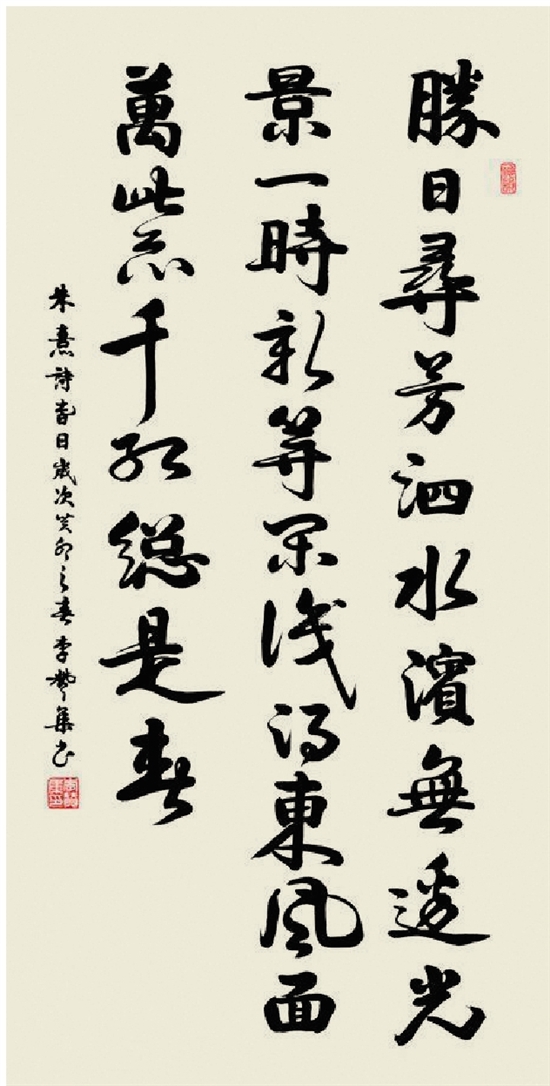 勝日尋芳泗水濱無邊光
景一時新等閑識得東風面
萬紫千紅總是春
朱熹詩春日歲次癸卯之春李集书